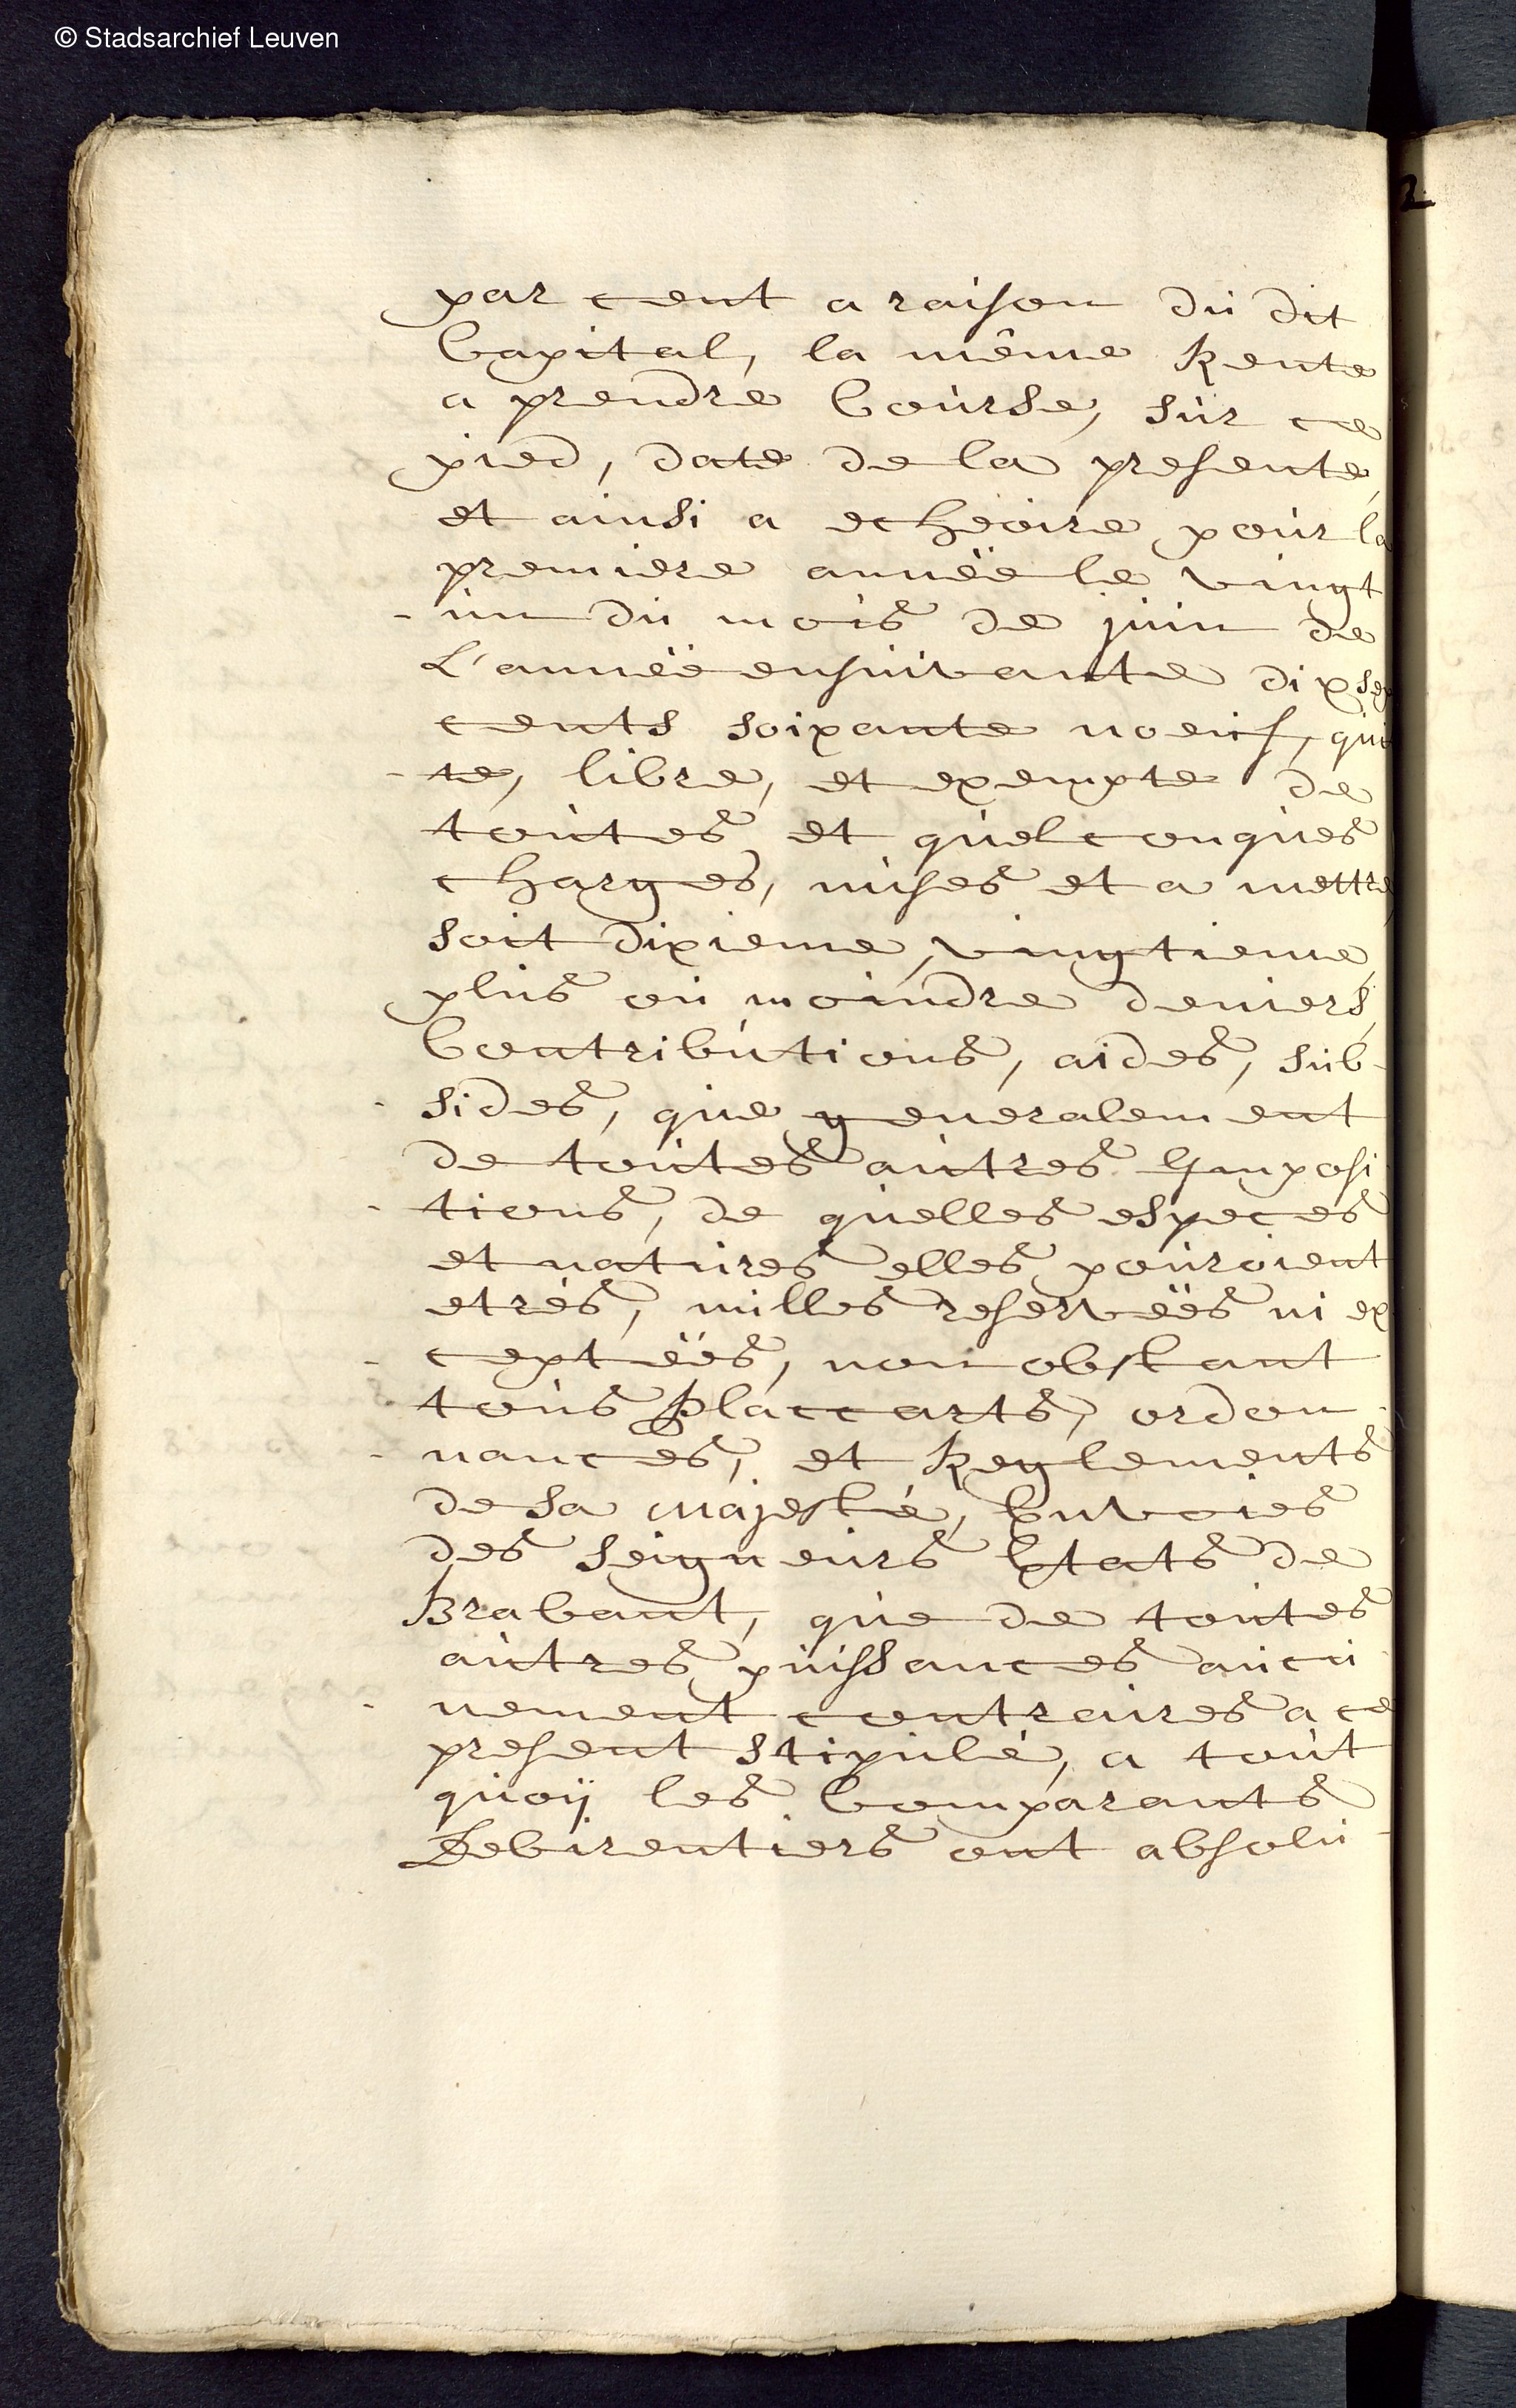 © Stadsarchief Leuven
2
par cent a raison du dit
Capital, la même Rente
a prendre Course, sur ce
pied, date de la presente,
et ainsi a echéoire pour la
premiere annëe le vingt
- un du mois de juin de
L'annëe ensuivante dix sep
cents soixante noeuf, quit
- te, libre, et exempte de
toutes et quelconques
charges, mises et a mettre,
soit dixieme, vingtieme,
plus ou moindre deniers,
Contributions, aides, sub-
- sides, que generalement
de toutes autres Imposi
- tions, de quelles especes
et natures elles pouroient
etrés, nulles reservëes ni ex
- ceptëes, non obstant
tous Placcarts, ordon-
- nances, et Reglements
de sa Majesté, Envoies
des seigneurs Etats de
Brabant, que de toutes
autres puissances aucu
- nement contraires a ce
present stipulé, a tout
quoÿ les Comparants
Debirentiers ont absolu-